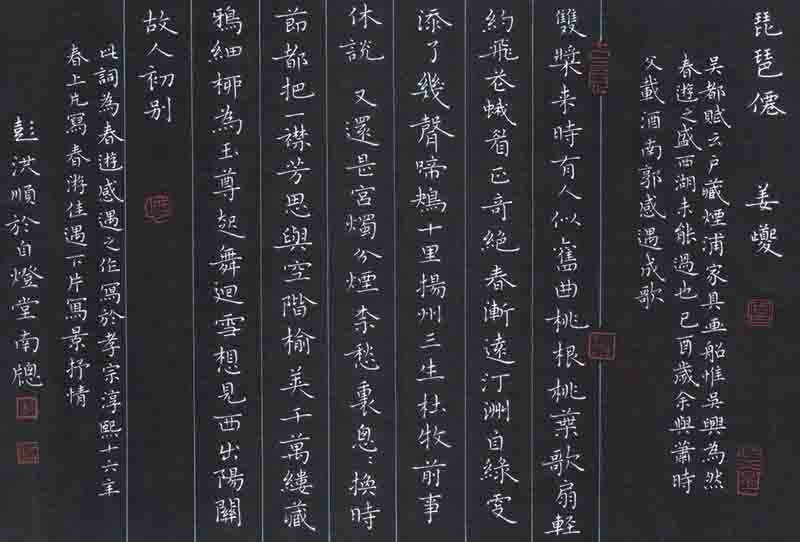 琵琶僊 姜夔
吳都賦云戶藏煙浦家具畫船惟吳興為然
春遊之盛西湖未能過也己酉歲余與蕭時
父載酒南郭感遇成歌
雙槳來時有人似舊曲桃根桃葉歌扇輕
約飛花蛾眉正奇絕春漸遠汀洲自綠更
添了幾聲啼鴂十里揚州三生杜牧前事
休說 又還是宮燭分煙柰愁裏息〻換時
節都把一襟芳思與空階榆莢千萬縷藏
鴉細柳為玉尊起舞迴雪想見西出陽關
故人初別
此詞為春遊感遇之作寫於孝宗淳熙十六年
春上片寫春游佳遇下片寫景抒情
彭洪順於自燈堂南牕